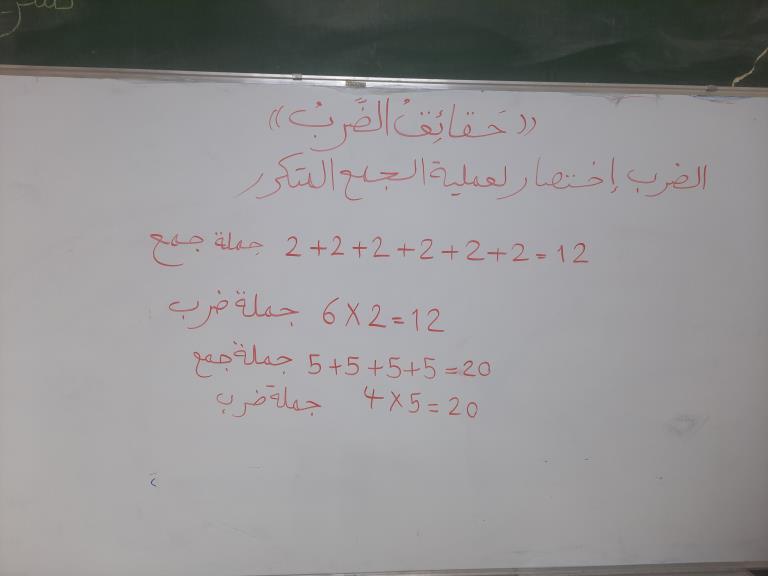 « حَقائِقُ الضَّربُ »
الضرب إختصار لعملية الجمع المتكرر
2+2+2+2+2+2=12 جملة جمع
6×2=12 جملة ضرب
5+5+5+5=20 جملة جمع
4×5=20 جملة ضرب